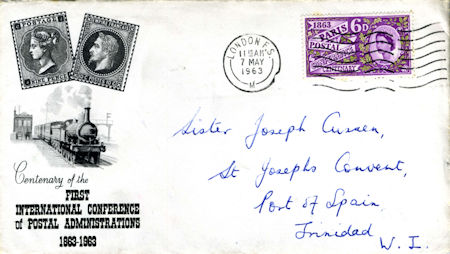 POSTAGE
NINE PENCE
LONDON F.S.
11 15 AM
7 MAY
1963
M
1863 6D
PARIS
POSTAL
CONFERENCE
CENTENARY
Sister Joseph Cussen,
St Josephs Convent,
Port of Spain,
Trinidad
W. I.
Centenary of the
FIRST
INTERNATIONAL CONFERENCE
of POSTAL ADMINISTRATIONS
1863-1963